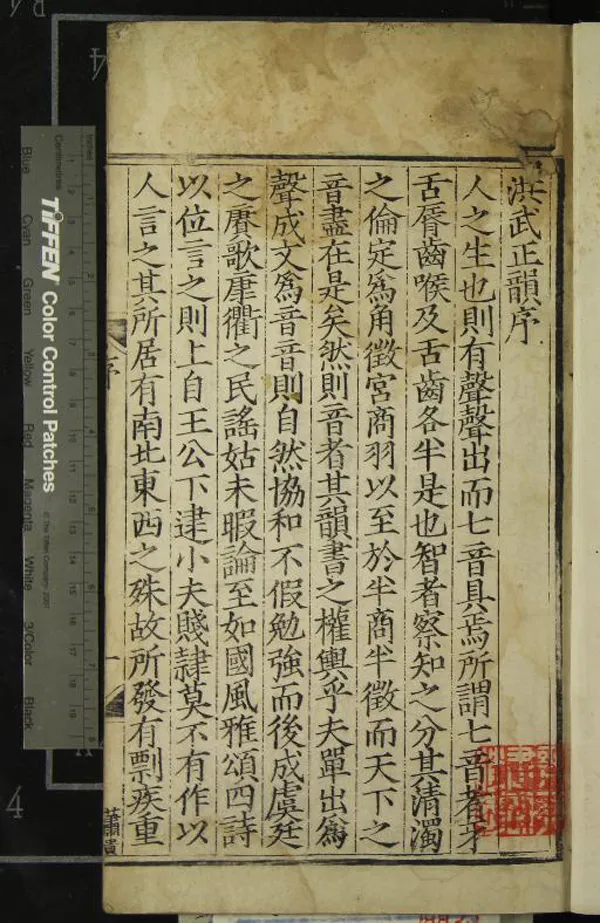 洪武正韻序
人之生也則有聲聲出而七音具焉所謂七音者牙
舌脣齒喉及舌齒各半是也智者察知之分其清濁
之倫定為角徵宮商羽以至於半商半徵而天下之
音盡在是矣然則音者其韻書之權輿乎夫單出為
聲成文為音音則自然協和不假勉強而後成虞廷
之賡歌康衢之民謠姑未暇論至如國風雅頌四詩
以位言之則上自王公下逮小夫賤隸莫不有作以
人言之其所居有南北東西之殊故所發有剽疾重
序
一
TIFFEN Color Control Patches
© The Tiffen Company, 2007
Centimetres
Inches
Blue
Cyan
Green
Yellow
Red
Magenta
White
3/Color
Black
4
4